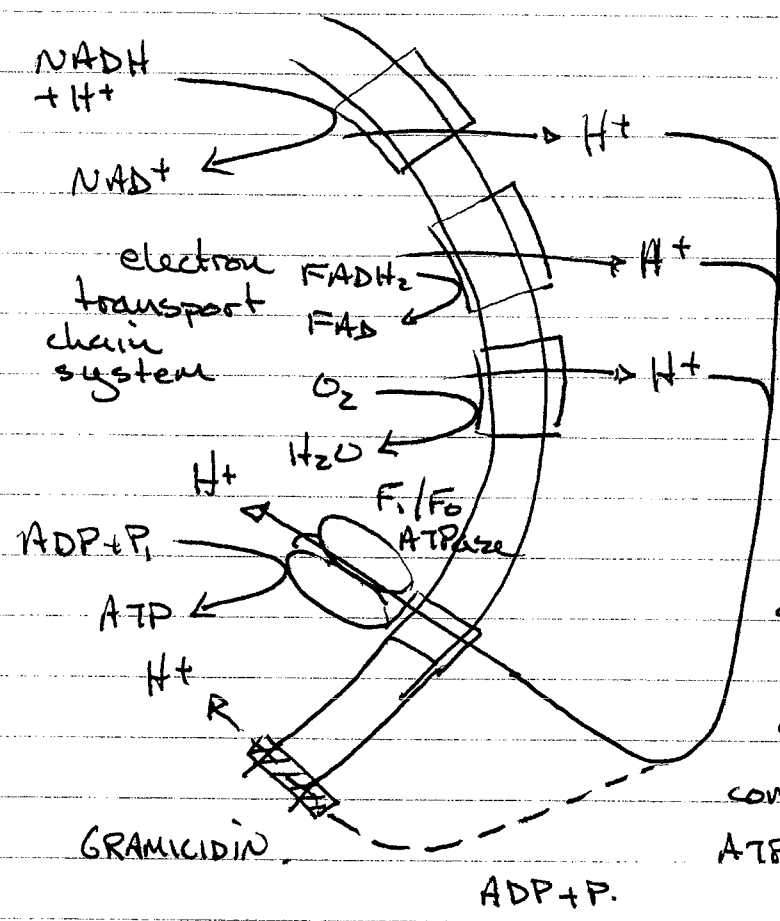 NADH
+ H+
H+
NAD+
electron
transport
chain
system
FADH₂
FAD
H+
O₂
H₂O
H+
H+
F₁/F₀
ATPase
ADP + Pi
ATP
H+
GRAMICIDIN
ADP + P.